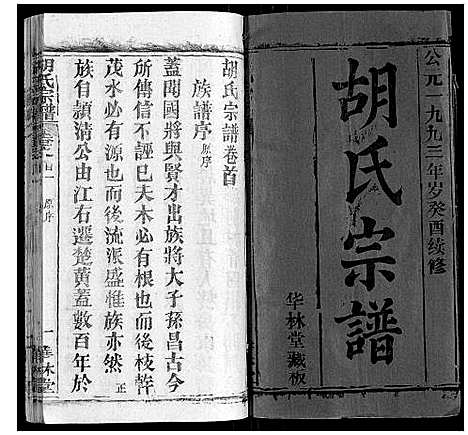 公元一九九三年岁癸酉续修
胡氏宗譜
华林堂藏板
胡氏宗譜卷首
族譜序 原序
蓋聞國將與賢才出族將大子孫昌古今
所傳信不誣已夫木必有根也而後枝幹
茂水必有源也而後流派盛惟族亦然 正
族自頴清公由江右遷楚黄蓋數百年於
胡氏宗譜
原序
一 華林堂